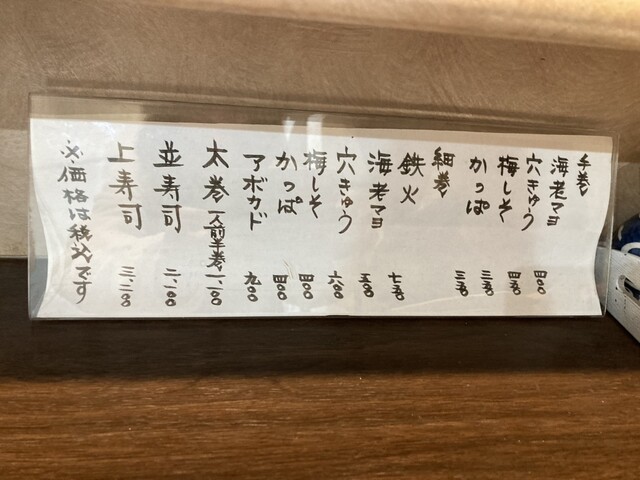 手巻
海老マヨ 四〇〇
穴きゅう 四五〇
梅しそ 三五〇
かっぱ 三五〇
細巻
鉄火 七五〇
海老マヨ 五〇〇
穴きゅう 六〇〇
梅しそ 四〇〇
かっぱ 四〇〇
アボカド 九〇〇
太巻 一人前半巻 一、一〇〇
並寿司 二、一〇〇
上寿司 三、二〇〇
※価格は税込です